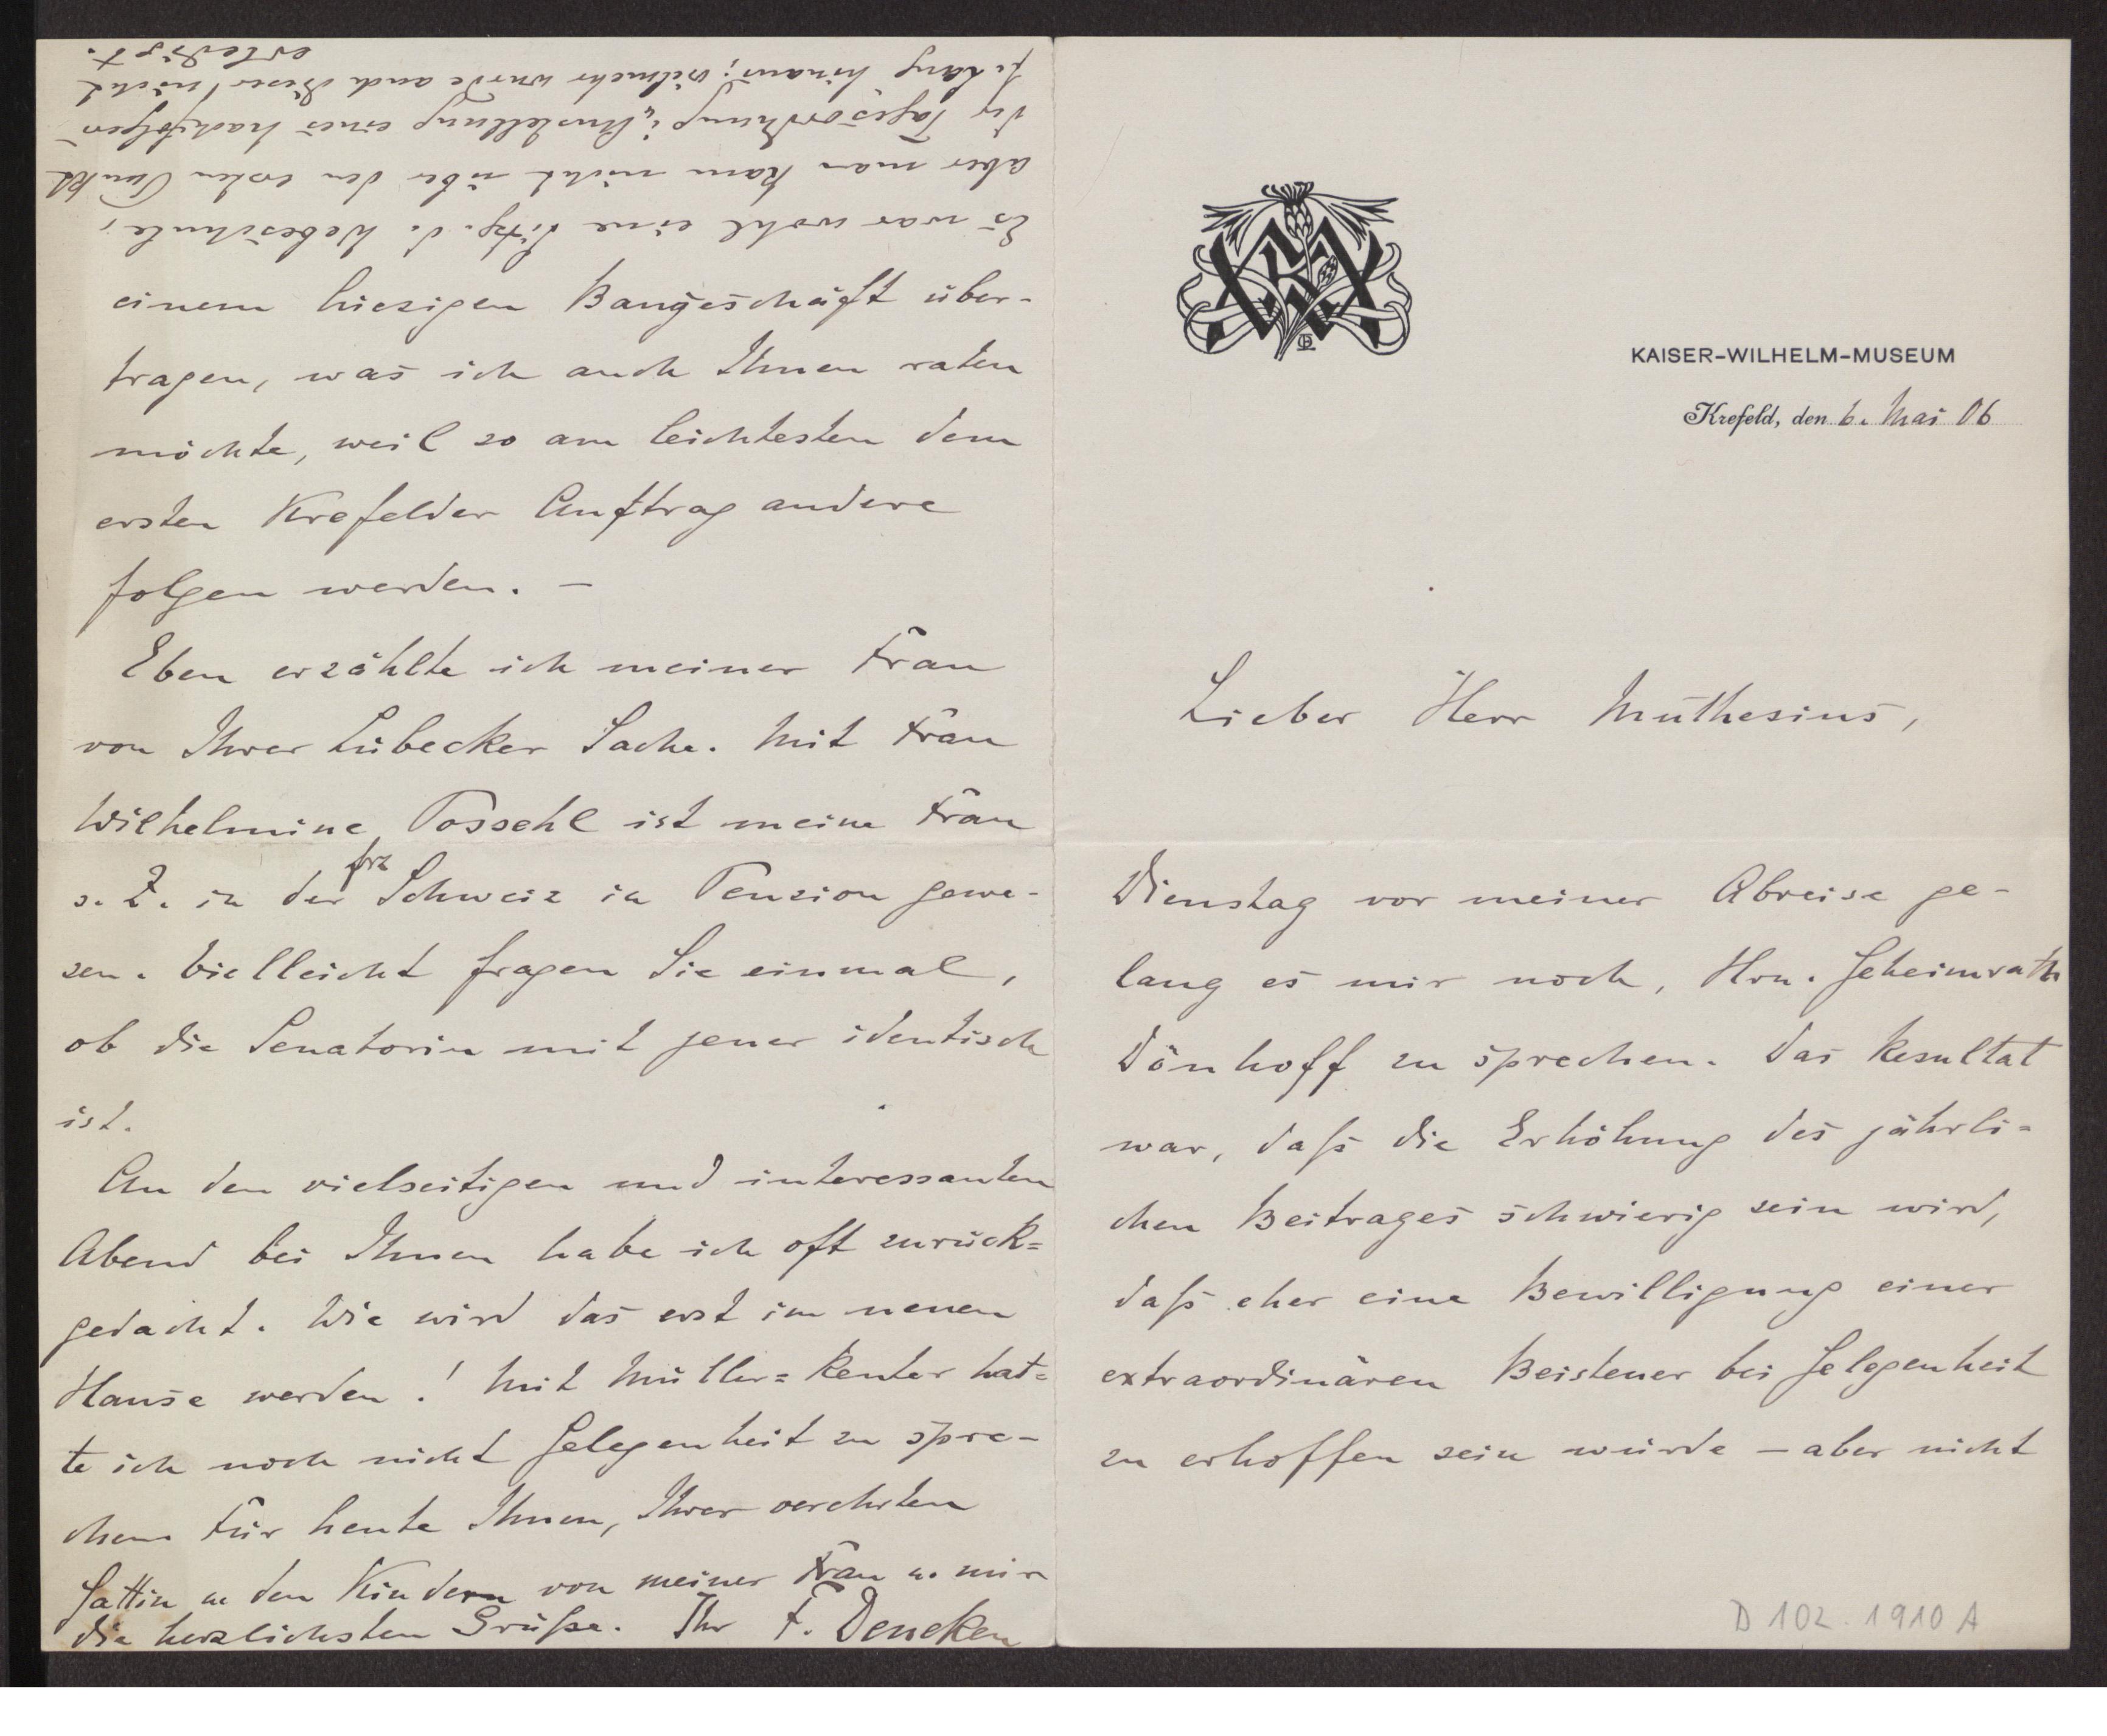 KAISER-WILHELM-MUSEUM
Krefeld, den 6. Mai 06
Lieber Herr Muthesius,
Dienstag vor meiner Abreise ge-
lang es mir noch, Hrn. Geheimrath
Dönhoff zu sprechen. Das Resultat
war, daſs die Erhöhung des jährli=
chen Beitrages schwierig sein wird,
daſs eher eine Bewilligung einer
extraordinären Beisteuer bei Gelegenheit
zu erhoffen sein würde – aber nicht
D 102-1910 A
einem hiesigen Baugeschäft über-
tragen, was ich auch Ihnen raten
möchte, weil so am leichtesten dem
ersten Krefelder Auftrag andere
folgen werden. –
Eben erzählte ich meiner Frau
von Ihrer Lübecker Sache. Mit Frau
Wilhelmine Possehl ist meine Frau
s. Z. in der frz Schweiz in Pension gewe-
sen. Vielleicht fragen Sie einmal,
ob die Senatorin mit jener identisch
ist.
An den vielseitigen und interessanten
Abend bei Ihnen habe ich oft zurück=
gedacht. Wie wird das erst im neuen
Hause werden! Mit Müller=Renter hat=
te ich noch nicht Gelegenheit zu spre-
chen. Für heute Ihnen, Ihrer verehrten
Gattin u den Kindern von meiner Frau u. mir
die herzlichsten Grüſse. Ihr F. Deneken
Es war wohl eine Sitzg. d. Webeschule,
aber man kam nicht über den ersten Punkt
der Tagesordnung: Anstellung eines Nachfolgers
hinaus; vielmehr wurde auch dieser nicht
erledigt.